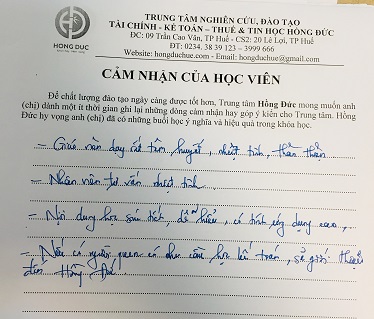 HONG DUC
TRUNG TÂM NGHIÊN CỨU, ĐÀO TẠO
TÀI CHÍNH - KẾ TOÁN – THUẾ & TIN HỌC HỒNG ĐỨC
ĐC: 09 Trần Cao Vân, TP Huế - CS2: 20 Lê Lợi, TP Huế
ĐT: 0234. 38 39 123 – 3999 666
Website: hongduchue.com - Email: hongduchue@gmail.com
CẢM NHẬN CỦA HỌC VIÊN
Để chất lượng đào tạo ngày càng được tốt hơn, Trung tâm Hồng Đức mong muốn anh
(chị) dành một ít thời gian ghi lại những dòng cảm nhận hay góp ý kiến cho Trung tâm. Hồng
Đức hy vọng anh (chị) đã có những buổi học ý nghĩa và hiệu quả trong khóa học.
- Giáo viên dạy rất tâm huyết, nhiệt tình, thân thiện
- Nhân viên tư vấn nhiệt tình.
- Nội dung học sát tiết, dễ hiểu, có tính ứng dụng cao.
- Nếu có người quen có nhu cầu học kế toán, sẽ giới thiệu
đến Hồng Đức